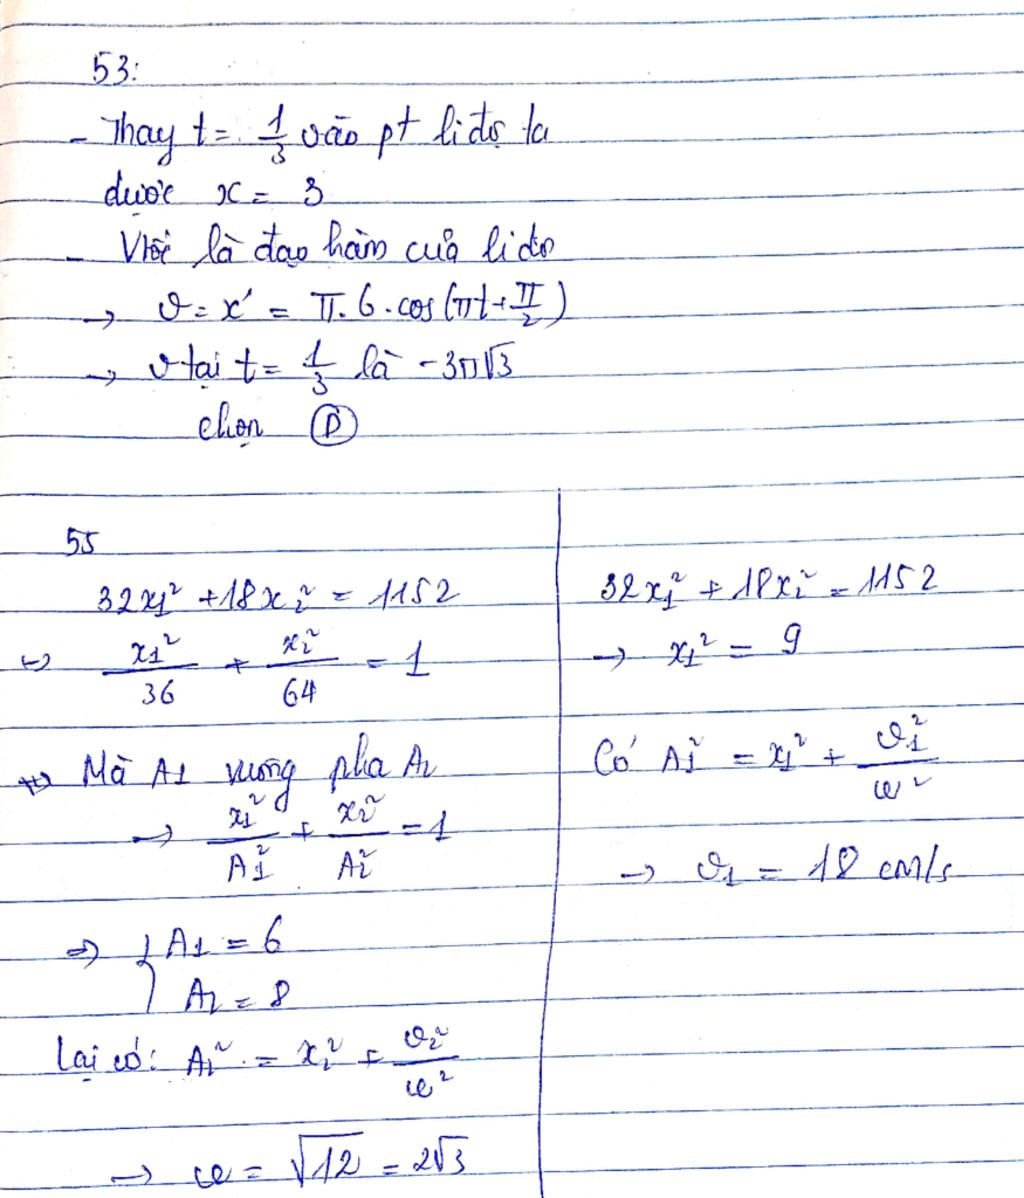 53:
- Thay t = 1/3 vào pt li độ ta
được x = 3
- Vtốc là đạo hàm của li độ
→ v = x' = π.6.cos(πt + π/2)
→ v tại t = 1/3 là -3π√3
chọn Ⓓ
55
32x₁² + 18x₂² = 1152
↔ x₁²/36 + x₂²/64 = 1
↔ Mà A₁ vuông pha A₂
→ x₁²/A₁² + x₂²/A₂² = 1
⇒ { A₁ = 6
A₂ = 8
Lại có: A₂² = x₂² + v₂²/ω²
→ ω = √12 = 2√3
32x₁² + 18x₂² = 1152
→ x₁² = 9
Có A₁² = x₁² + v₁²/ω²
→ v₁ = 18 cm/s